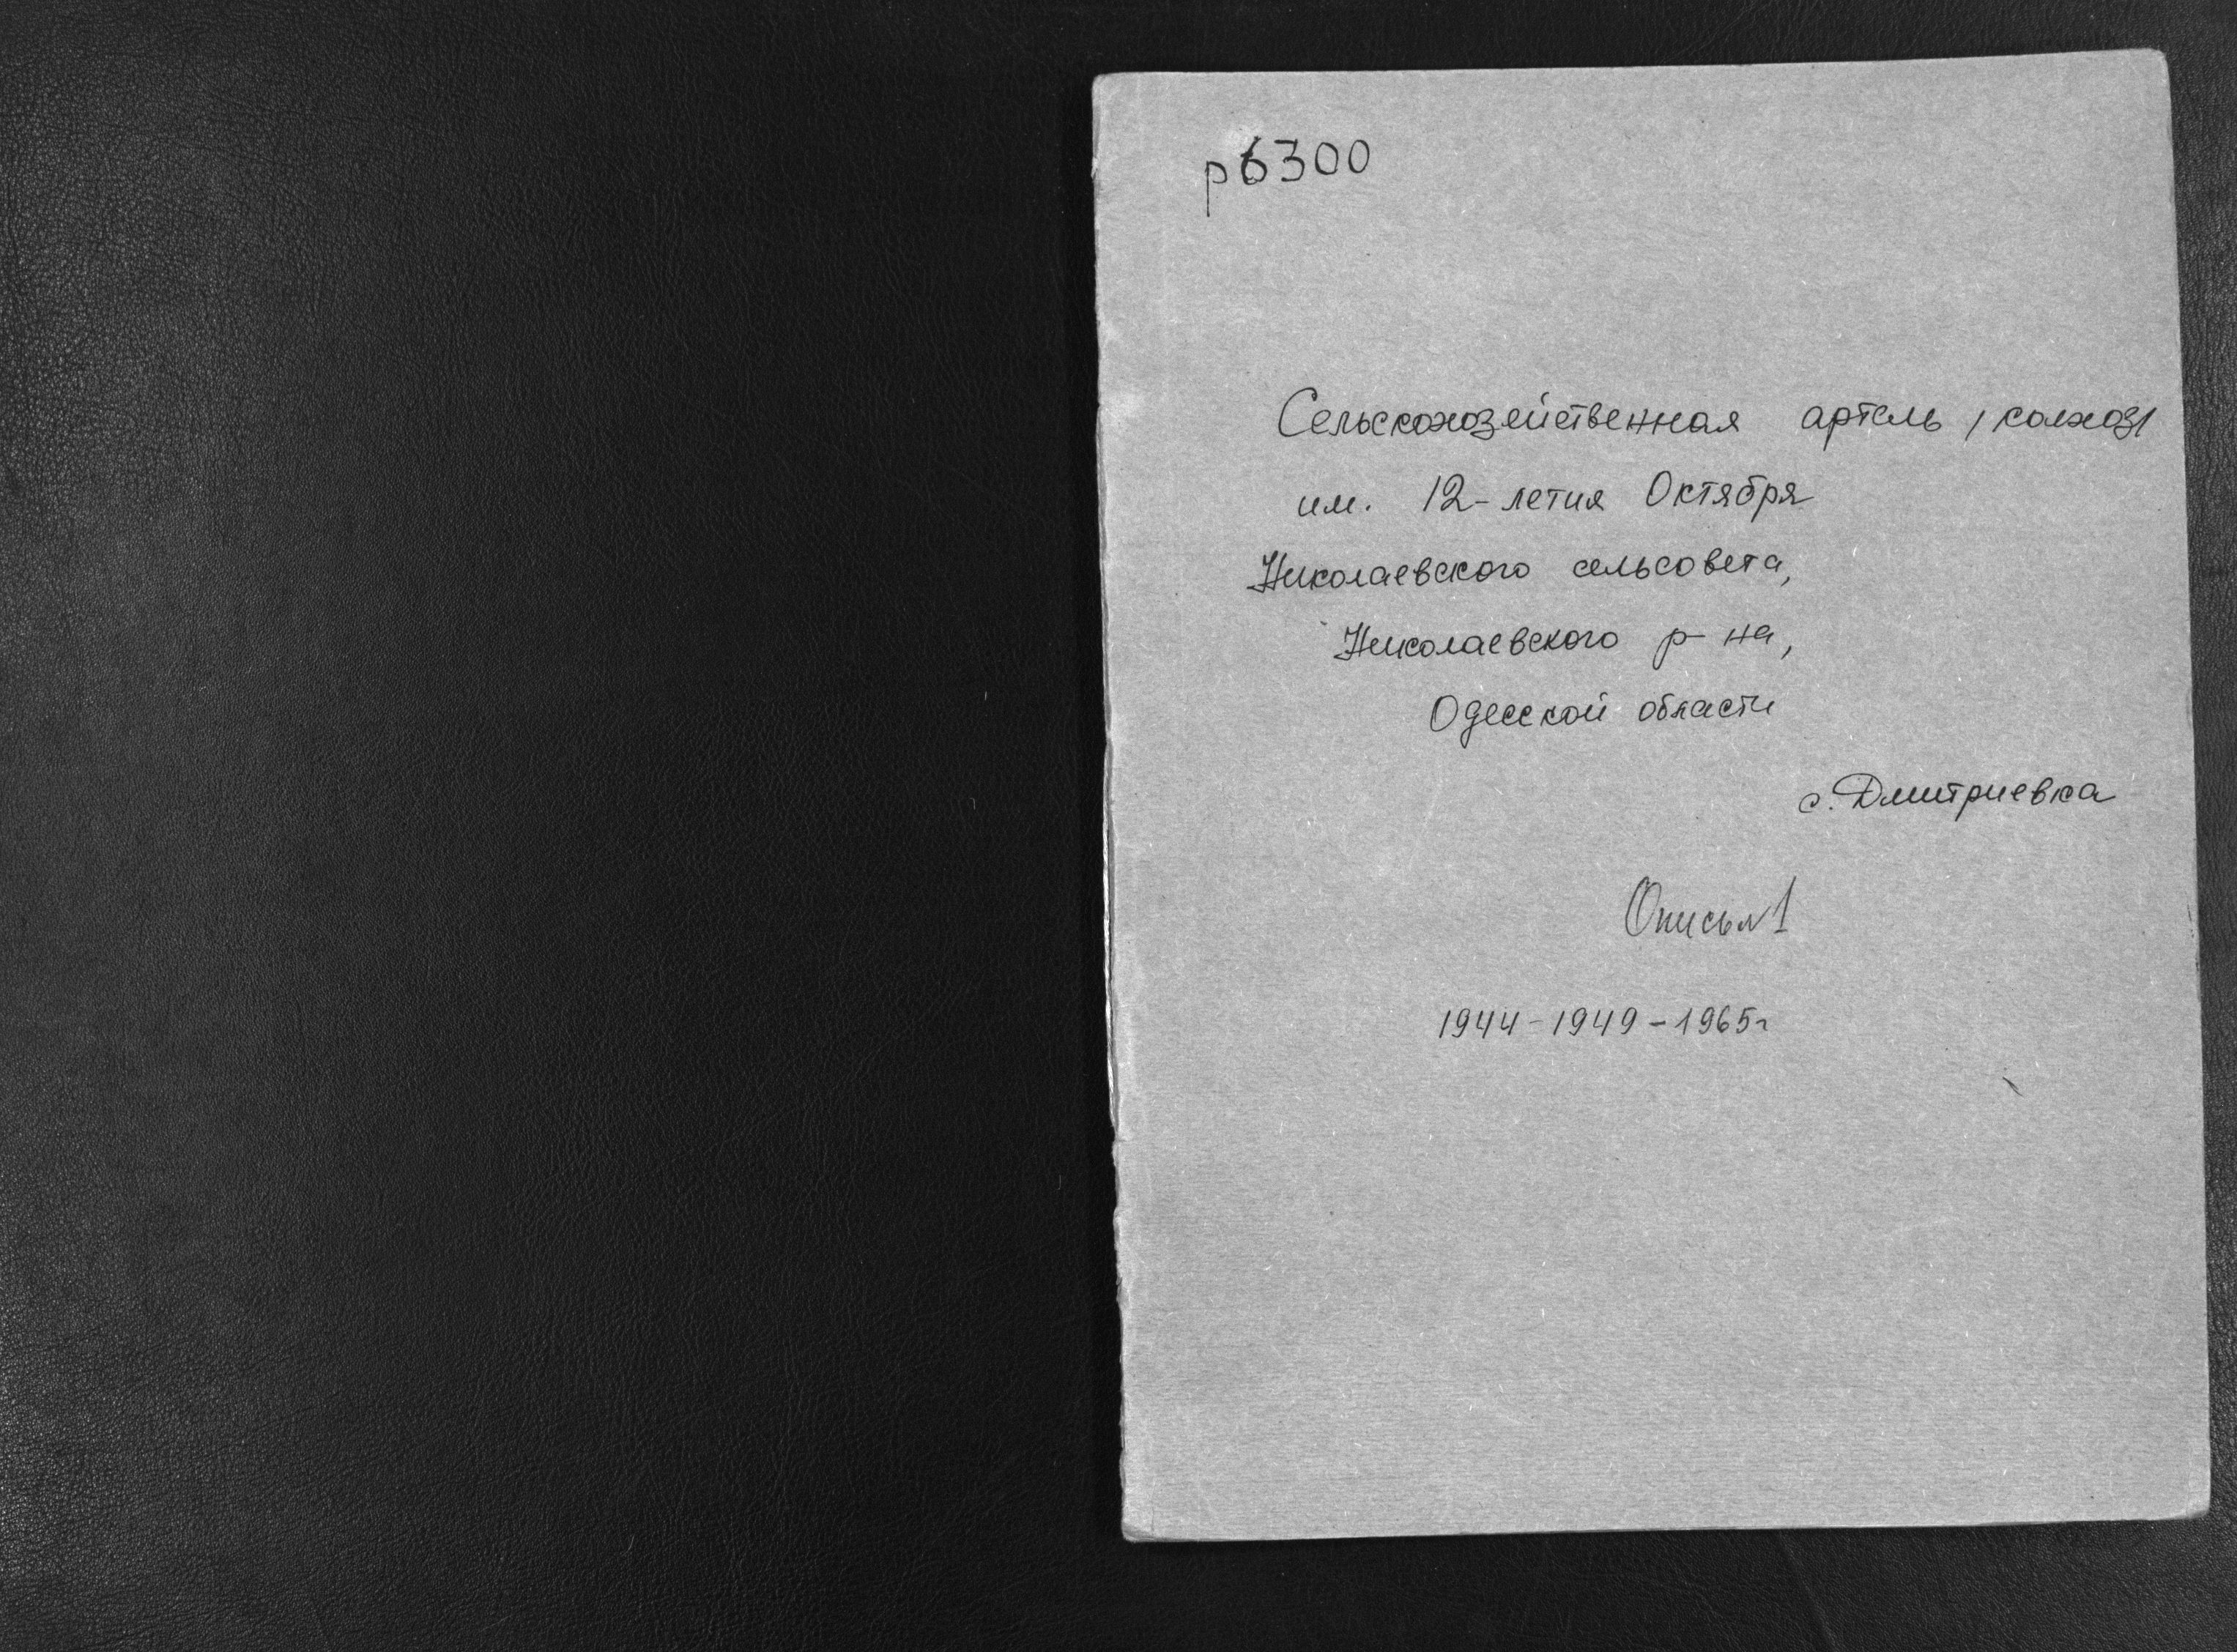 р6300
Сельскохозяйственная артель /колхоз/
им. 12-летия Октября
Николаевского сельсовета,
Николаевского р-на,
Одесской области
с. Дмитриевка
Опись №1
1944-1949-1965г